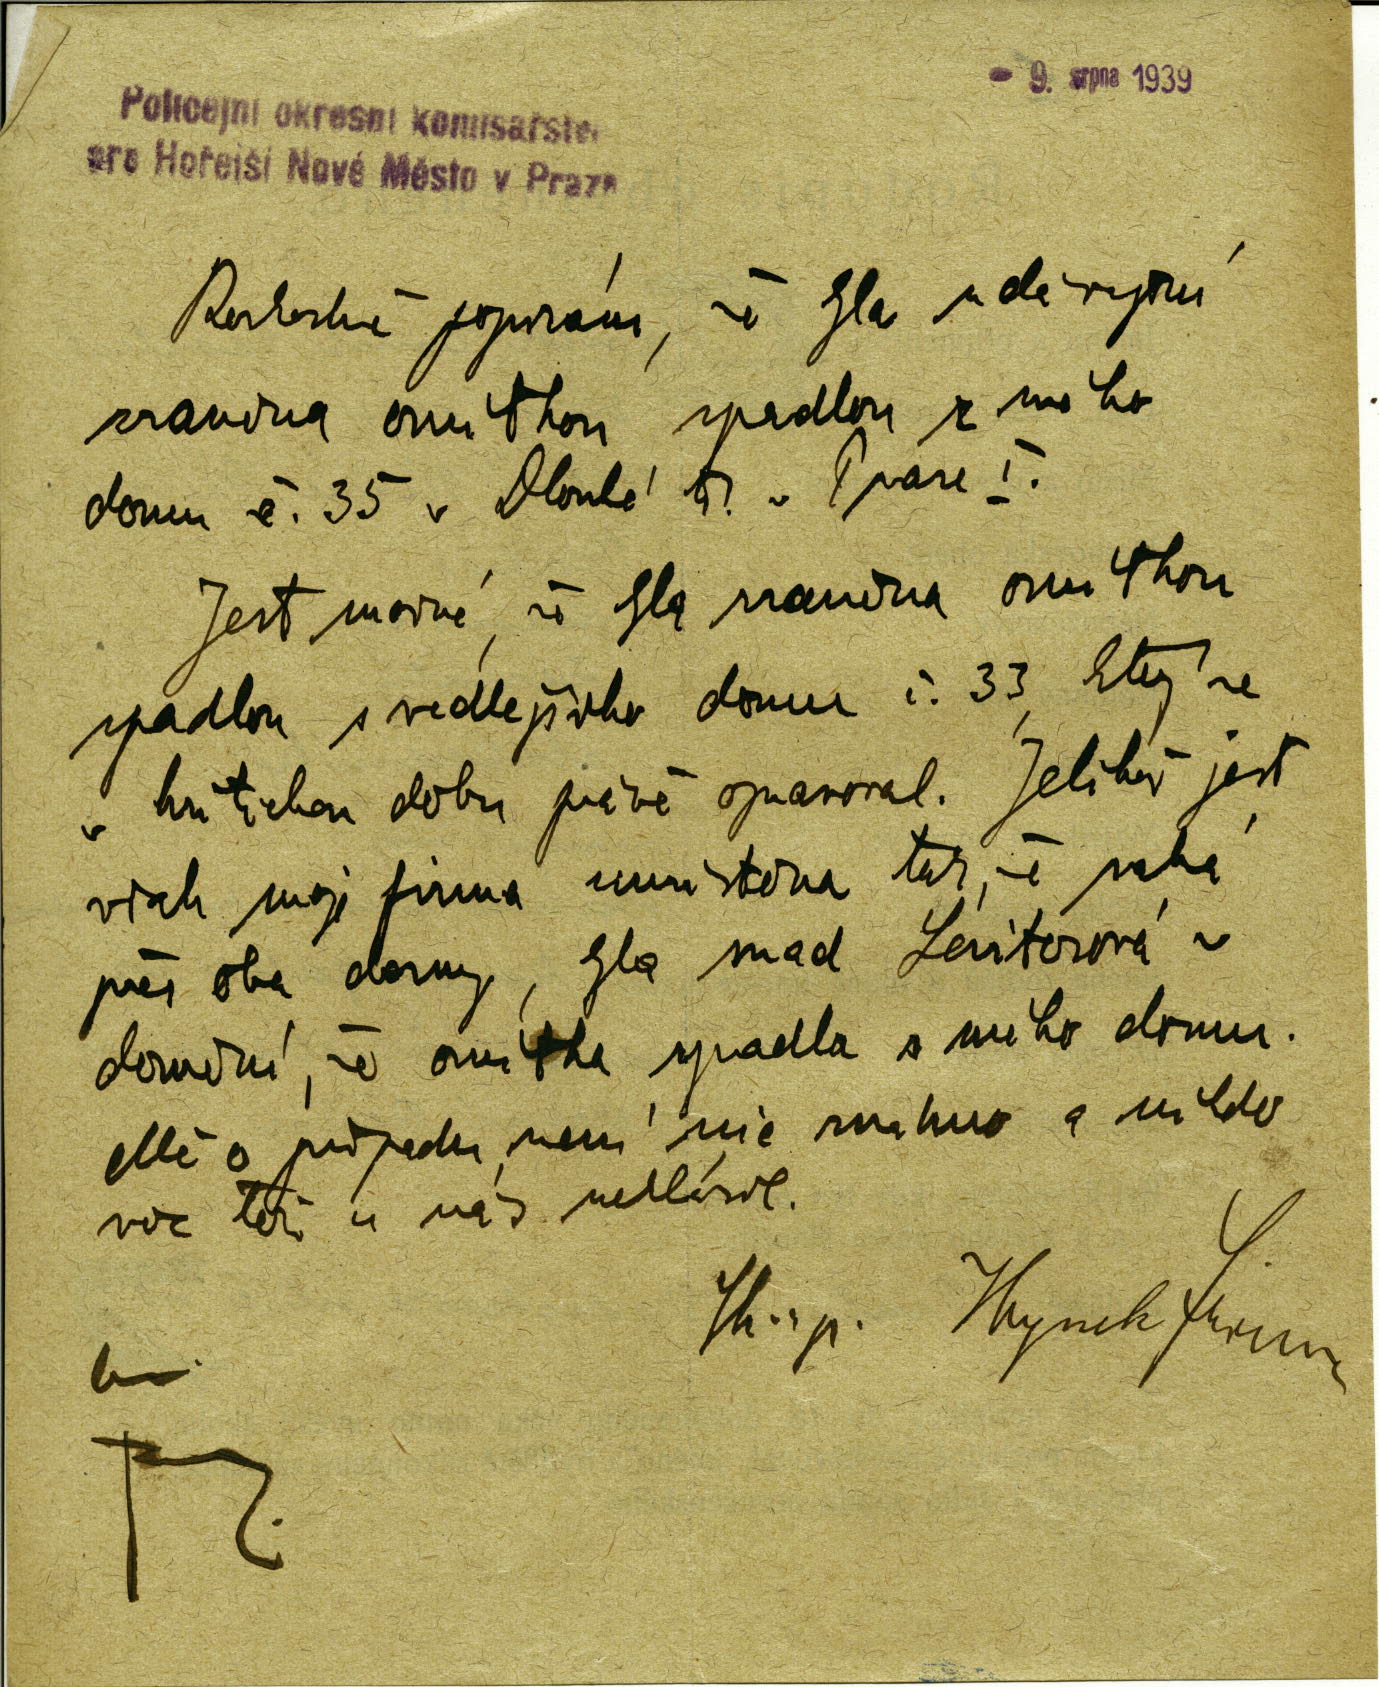 - 9. srpna 1939
Policejní okresní komisařstv.
pro Hořejší Nové Město v Praze
Rozhodně popírám, že byla udavatelkou
zraněna omítkou spadlou z mého
domu č. 35 v Dlouhé tř. v Praze I.
Jest možné, že byla zraněna omítkou
spadlou s vedlejšího domu č. 33, který se
v kritickou dobu právě opravoval. Jelikož jest
však moje firma umístěna tak, že sahá
přes oba domy, byla snad Leviterová v
domnění, že omítka spadla s mého domu.
Mně o případu není nic známo a nikdo
více též u nás nehlásil.
Sk. s p. Hynek